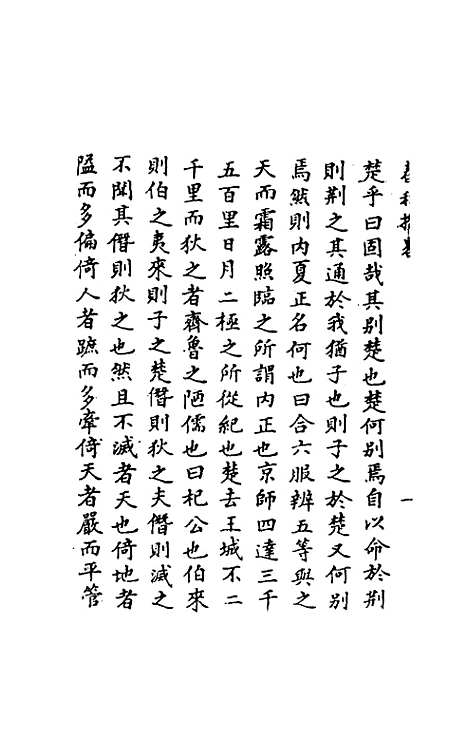 春秋揆卷 一
楚乎曰固哉其別楚也楚何別焉自以命於荆
則荆之其通於我猶子也則子之於楚又何別
焉然則內夏正名何也曰合六服辨五等與之
天而霜露照臨之所謂內正也京師四達三千
五百里日月二極之所從紀也楚去王城不二
千里而狄之者齊魯之陋儒也曰杞公也伯來
則伯之夷來則子之楚僭則狄之夫僭則滅之
不聞其僭則狄之也然且不滅者天也倚地者
隘而多偏倚人者蹠而多牽倚天者嚴而平管